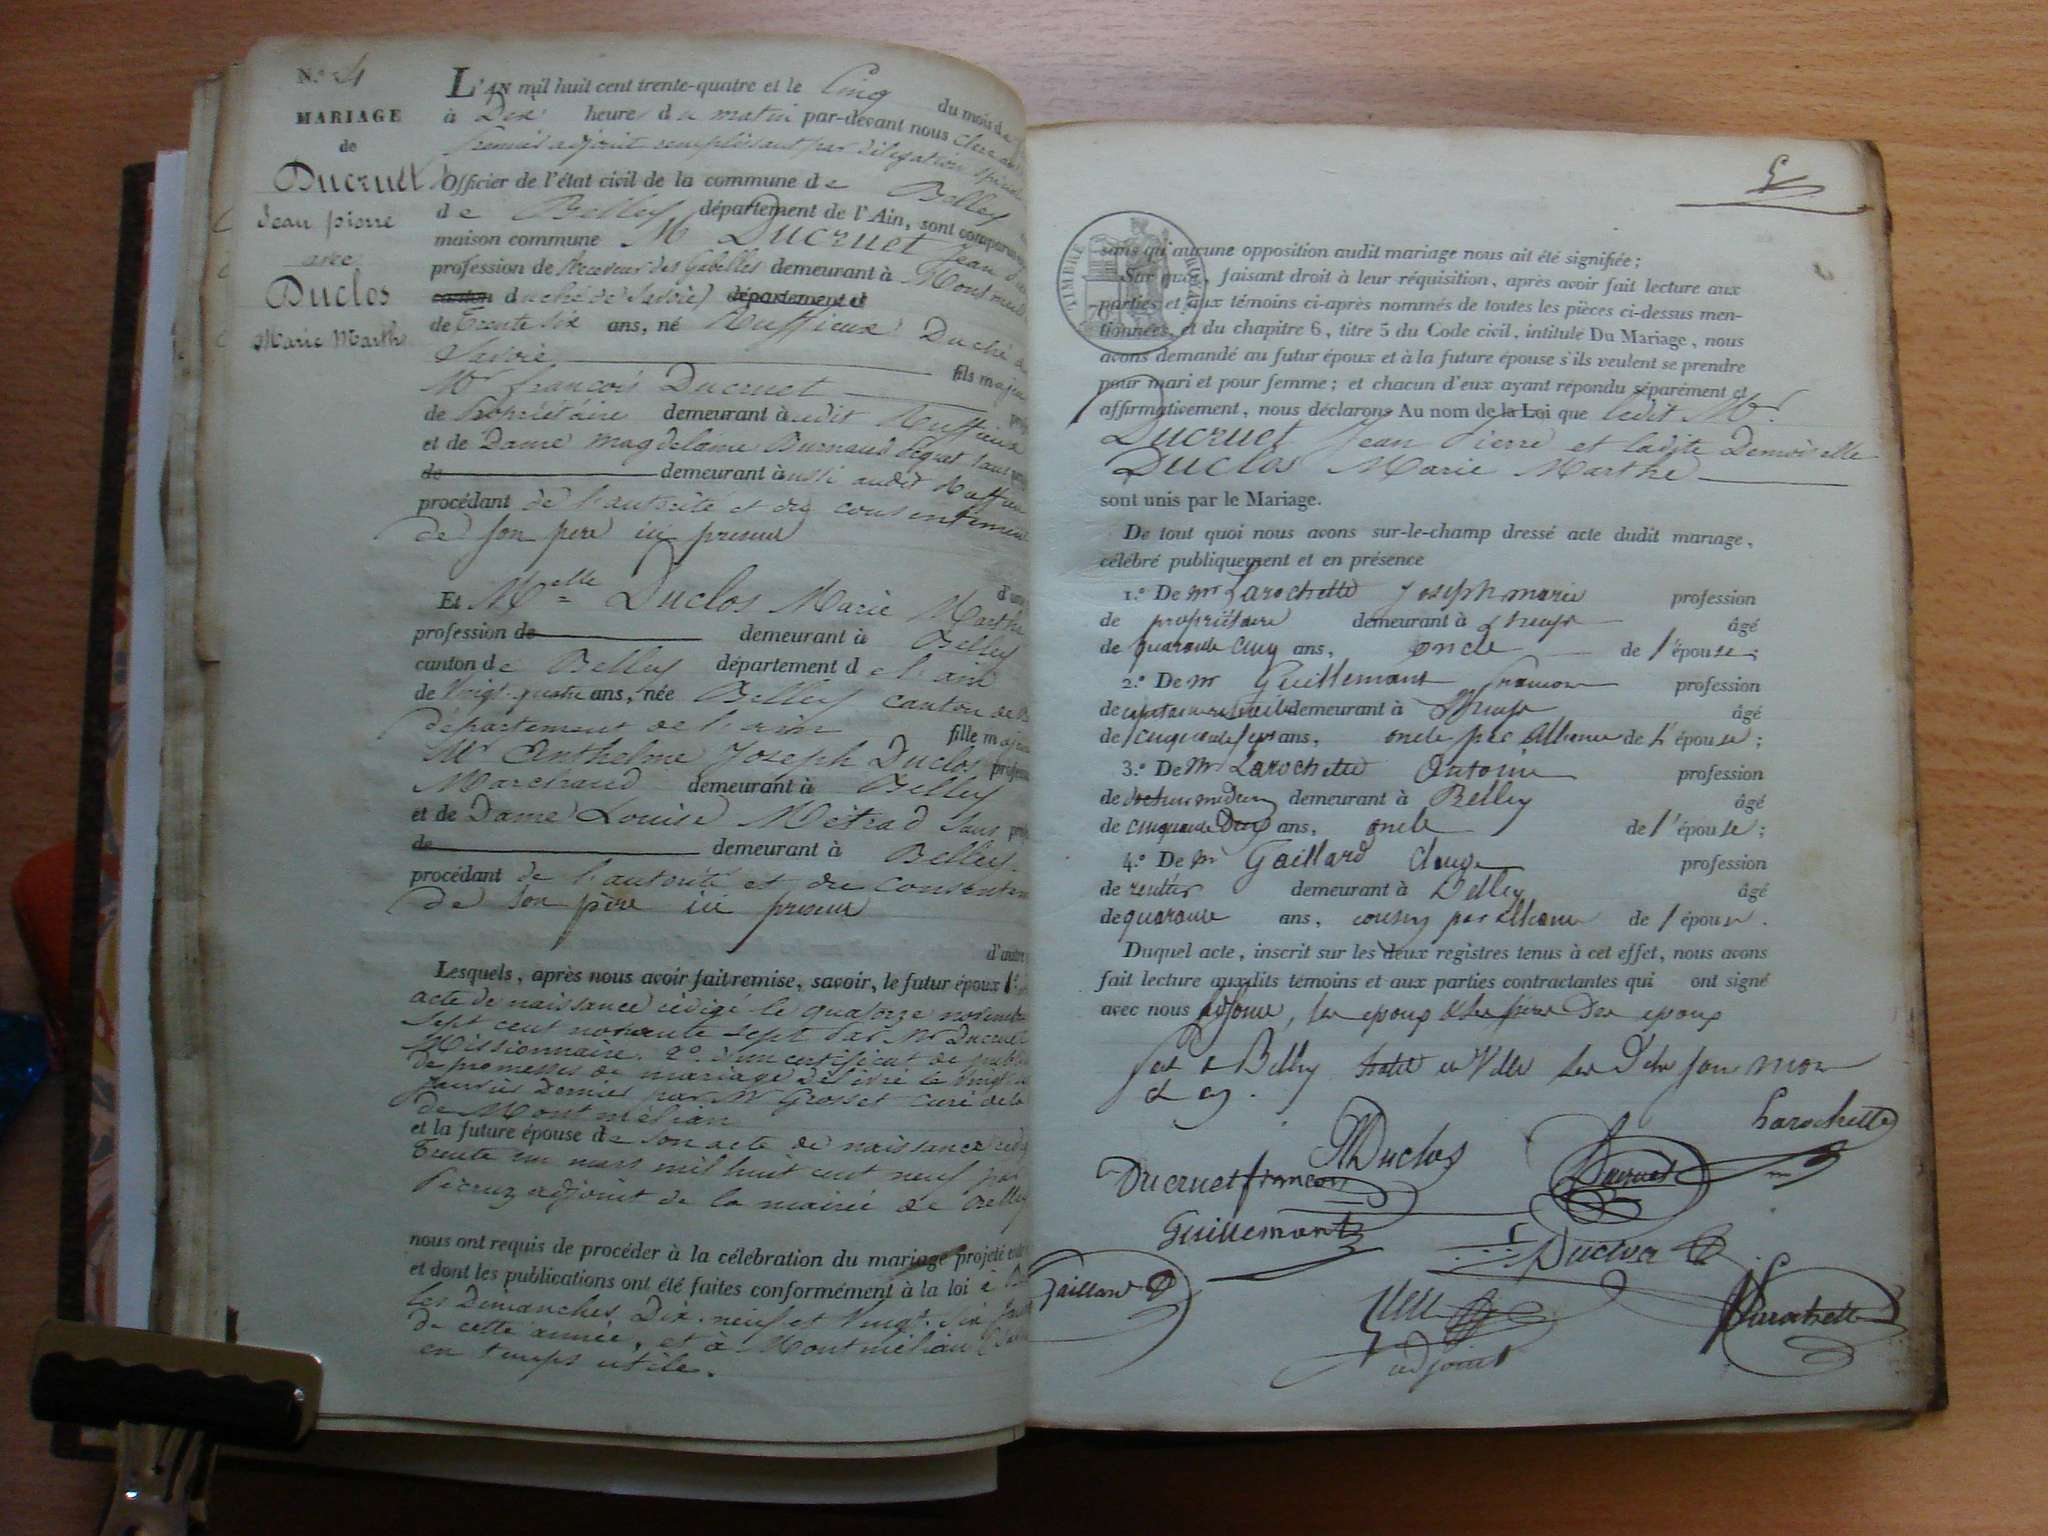 N.º 4
MARIAGE
de
Ducruet
Jean pierre
avec
Duclos
Marie Marthe
L'AN mil huit cent trente-quatre et le Cinq du mois de
à Dix heures du matin par-devant nous Clerc
premier adjoint remplissant par délégation spéciale
Officier de l'état civil de la commune de Belley
de Belley département de l'Ain, sont comparus
maison commune M Ducruet Jean
profession de Receveur des Gabelles demeurant à Montmeil
canton duché de Savoie département d
de Trente six ans, né Ruffieux Duché de
Savoie fils majeur
Mr françois Ducruet
de Propriétaire demeurant audit Ruffieux
et de Dame Magdelaine Burnaud Sans
de demeurant aussi audit Ruffieux
procédant de l'autorité et du consentement
de son pere ici present
d'une
Et Melle Duclos Marie Marthe
profession de demeurant à Belley
canton de Belley département de l'ain
de Vingt quatre ans, née Belley canton de B
département de l'ain fille majeure
Mr Anthelme Joseph Duclos profession
Marchand demeurant à Belley
et de Dame Louise Métrad Sans
de demeurant à Belley
procédant de l'autorité et du consentem
de son père ici present
d'autre
Lesquels, après nous avoir fait remise, savoir, le futur époux 1º
acte de naissance rédigé le quatorze novembre
sept cent novante sept par Mr Ducruet
Missionnaire. 2º d'un certificat de publi
de promesses de mariage délivré le Vingt
janvier Dernier par Mr Grosset curé de la
de Montmélian
et la future épouse de son acte de naissance rédigé
Trente un mars mil huit cent neuf par
adjoint de la mairie de Belley
nous ont requis de procéder à la célébration du mariage projeté entre
et dont les publications ont été faites conformément à la loi à
les Dimanches Dix-neuf et Vingt-Six Janv
de cette année, et à Montmélian
en temps utile.
5
TIMBRE ROYAL
sans qu'aucune opposition audit mariage nous ait été signifiée;
Sur quoi, faisant droit à leur réquisition, après avoir fait lecture aux
parties et aux témoins ci-après nommés de toutes les pièces ci-dessus men-
tionnées, et du chapitre 6, titre 5 du Code civil, intitulé Du Mariage, nous
avons demandé au futur époux et à la future épouse s'ils veulent se prendre
pour mari et pour femme; et chacun d'eux ayant répondu séparément et
affirmativement, nous déclarons Au nom de la Loi que ledit Mr
Ducruet Jean Pierre et ladite Demoiselle
Duclos Marie Marthe
sont unis par le Mariage.
De tout quoi nous avons sur-le-champ dressé acte dudit mariage,
célébré publiquement et en présence
1.º De mr Larochette Joseph marie profession
de propriétaire demeurant à âgé
de quarante cinq ans, oncle de l'épouse;
2.º De mr Guillemant profession
de demeurant à âgé
de ans, oncle par Alliance de L'épouse;
3.º De Mr Larochette Antoine profession
de docteur medecin demeurant à Belley âgé
de cinquante Deux ans, oncle de l'épouse;
4.º De mr Gaillard profession
de rentier demeurant à Belley âgé
de quarante ans, cousin par Alliance de l'époux.
Duquel acte, inscrit sur les deux registres tenus à cet effet, nous avons
fait lecture auxdits témoins et aux parties contractantes qui ont signé
avec nous adjoint, les epoux et les pères Des epoux
fait à Belley hotel de Ville Les D jour mois
et an.
Larochette
MDuclos
Ducruet françois
Ducruet
Guillemant
Duclos
Gaillard
Larochette
adjoint